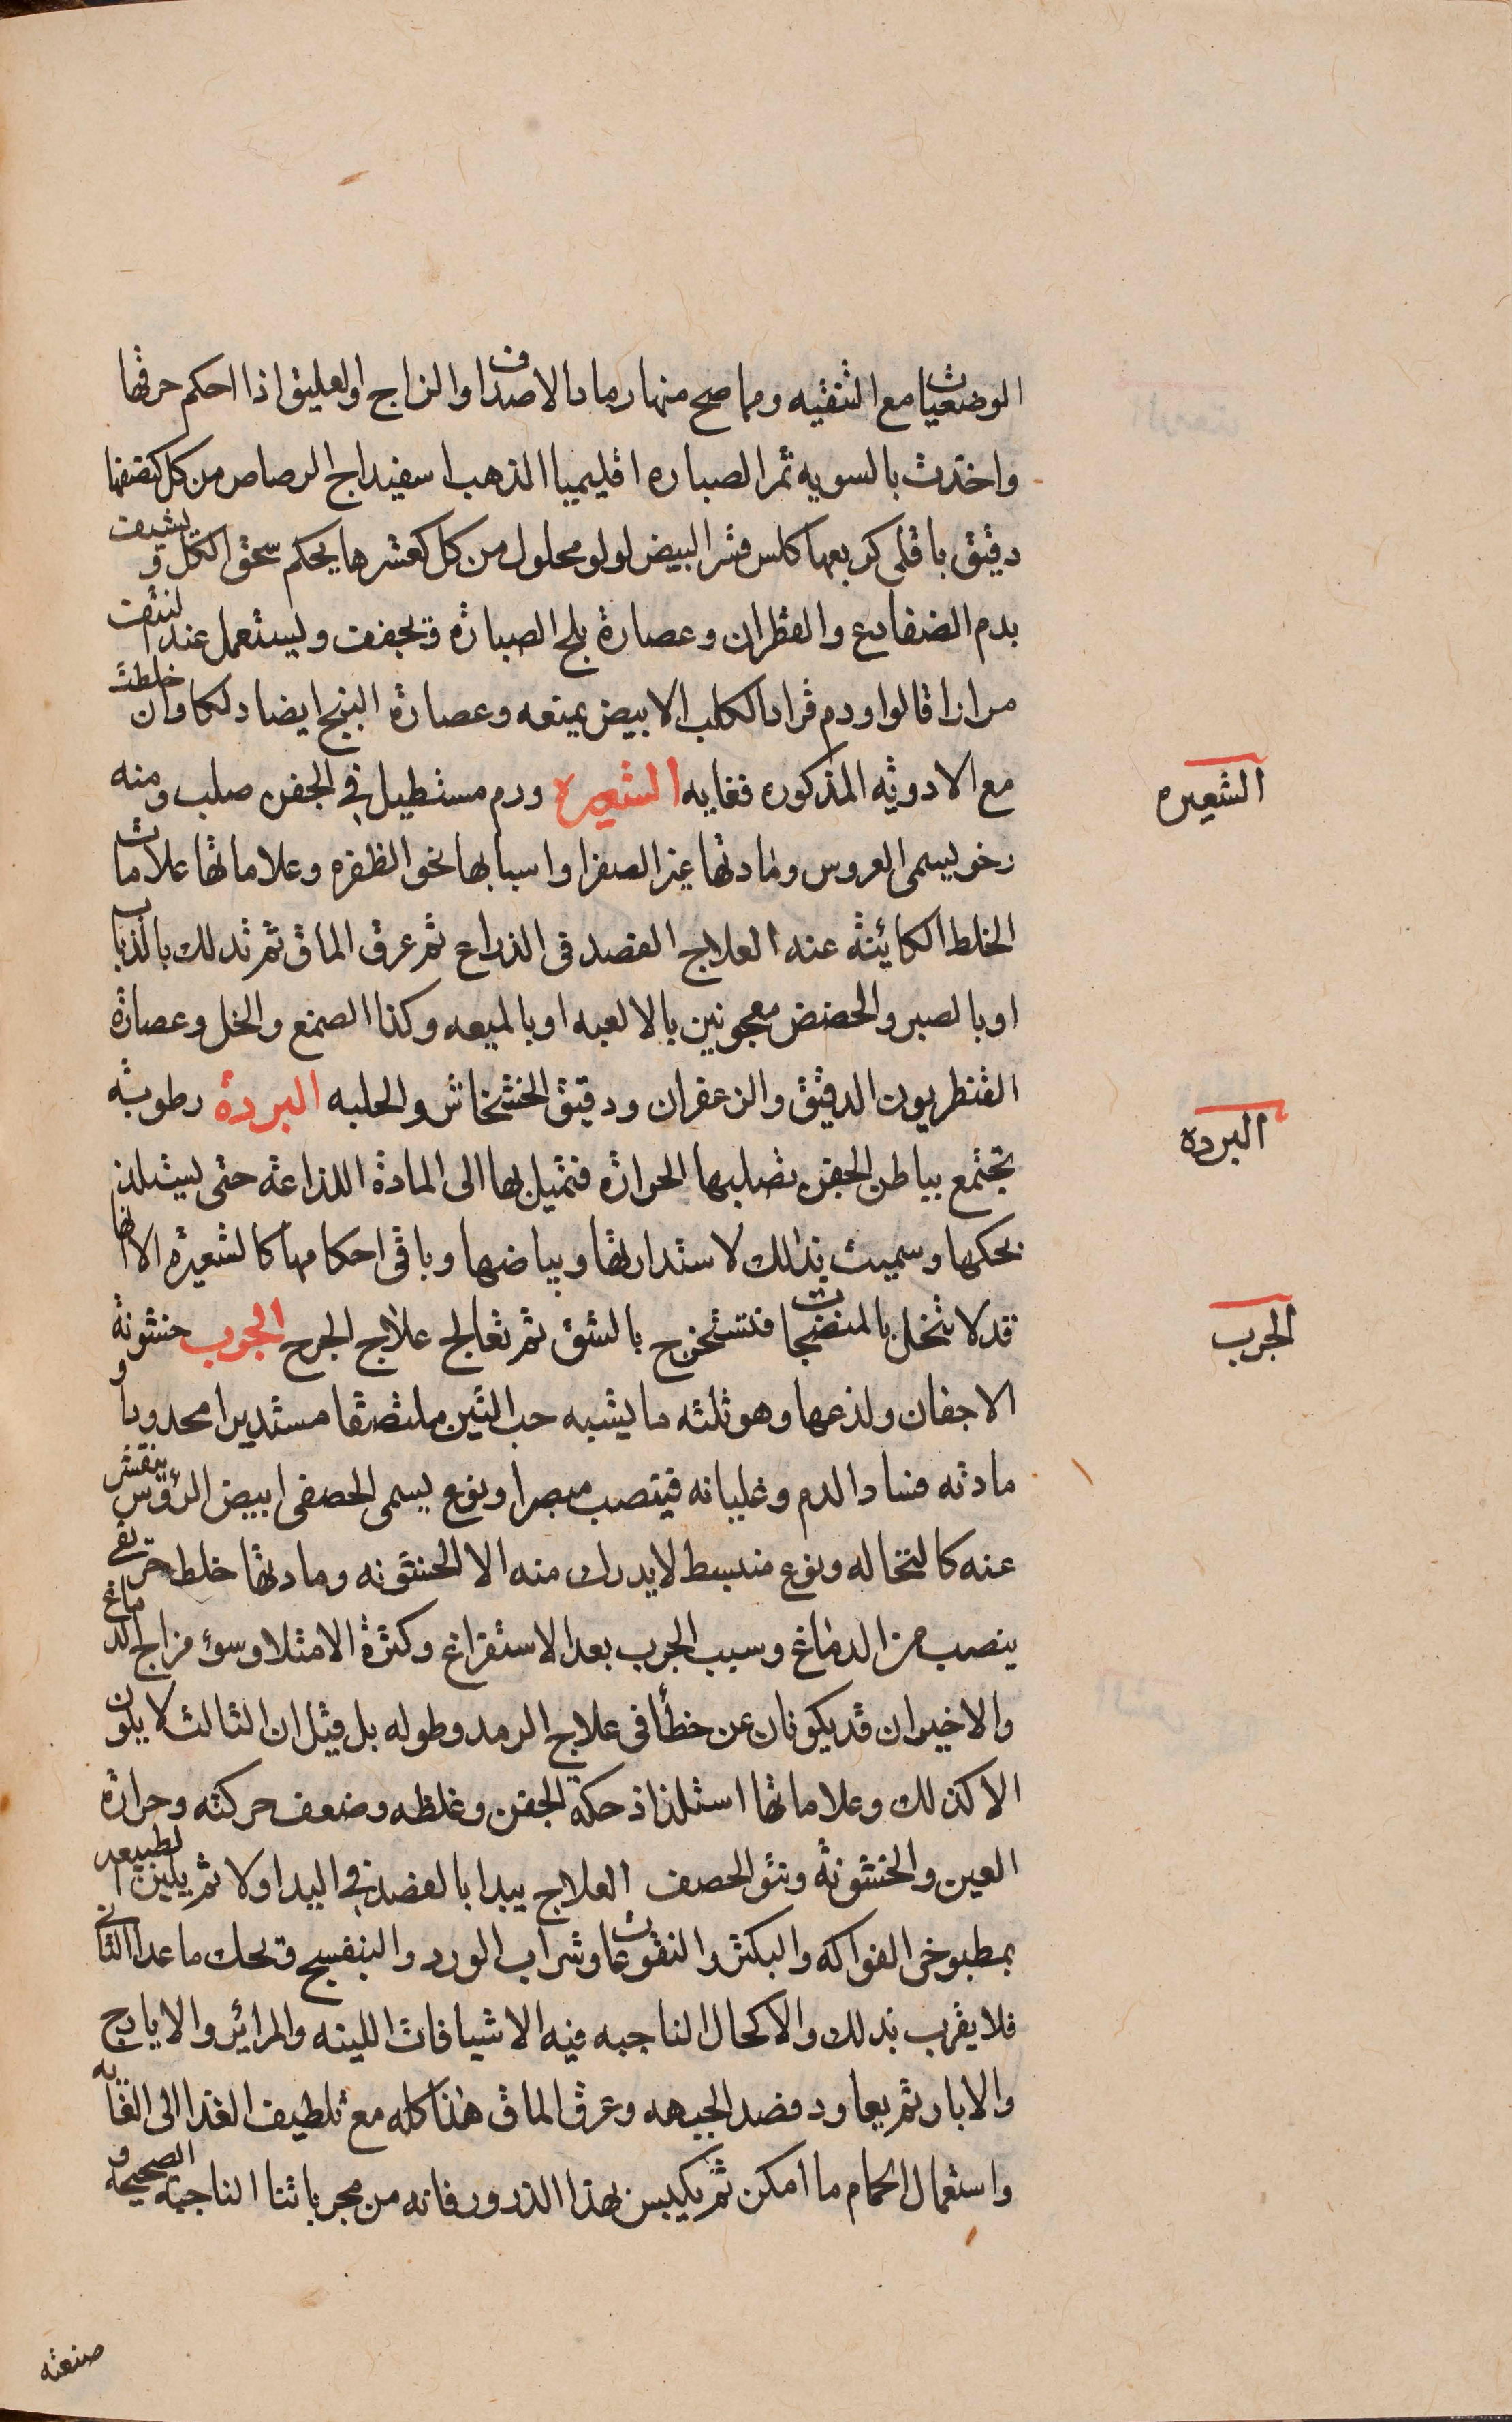 الوضعيات مع التنقيه ومما صح منها رماد الاصداف والزاج والعليق اذا احكم حرقها
واخذت بالسويه ثمر الصباره اقليميا الذهب اسفيداج الرصاص من كل كنصفها
دقيق باقلى كربعها كلس قشر البيض لولو محلول من كل كعشرها يحكم سحق الكل ويشيف
بدم الضفادع والقطران وعصارة بلح الصبارة وتجفف ويستعمل عند النتف
مرارا قالوا ودم قراد الكلب الابيض يمنعه وعصارة البنج ايضا دلكا وان خلطت
مع الادويه المذكوره فغايه الشعيره ورم مستطيل في الجفن صلب ومنه
رخو يسمى العروس ومادتها غير الصفرا واسبابها نحو الظفره وعلاماتها علامات
الخلط الكائنة عنه العلاج الفصد في الذراع ثم عرق الماق ثم تدلك بالذباب
او بالصبر والحضض معجونين بالالعبه او بالميعه وكذا الصمغ والخل وعصارة
القنطريون الدقيق والزعفران ودقيق الخشخاش والحلبه البردة رطوبة
تجتمع بباطن الجفن تصلبها الحرارة فتميل بها الى المادة اللذاعة حتى يستلذ
بحكها وسميت بذلك لاستدارتها وبياضها وباقى احكامها كالشعيرة الا انها
قد لا تنحل بالمنضجات فتستخرج بالشق ثم تعالج علاج الجرح الجرب خشونة
الاجفان ولذعها وهو ثلثه ما يشبه حب التين ملتصقا مستديرا محدودبا و
مادته فساد الدم وغليانه فيتصبب مبصرا ونوع يسمى الحصفى ابيض الرؤس يتقشر
عنه كالنخاله ونوع منبسط لا يدرك منه الا الخشونه ومادتها خلط حريفى
ينصب من الدماغ وسبب الجرب بعد الاستفراغ وكثرة الامتلا وسوء مزاج الدماغ
والاخيران قد يكونان عن خطأ فى علاج الرمد وطوله بل قيل ان الثالث لا يكون
الا كذلك وعلاماتها استلذاذ حكة الجفن وغلظه وضعف حركته وحرارة
العين والخشونة ونتو الحصف العلاج يبدا بالفصد في اليد اولا ثم يلين الطبيعه
بمطبوخى الفواكه والبكتر والنقوعات وشراب الورد والبنفسج وتحك ماعدا الثانى
فلا يقرب بذلك والاكحال الناجبه فيه الاشيافات اللينه والمرائر والايارج
والابار ثم يعاود فصد الجبهه وعرق الماق هذا كله مع تلطيف الغذا الى الغايه
واستعمال الحمام ما امكن ثم يكبس بهذا الذرور فانه من مجرباتنا الناجبة الصحيحة و
صنعته
الشعيره
البرده
الجرب